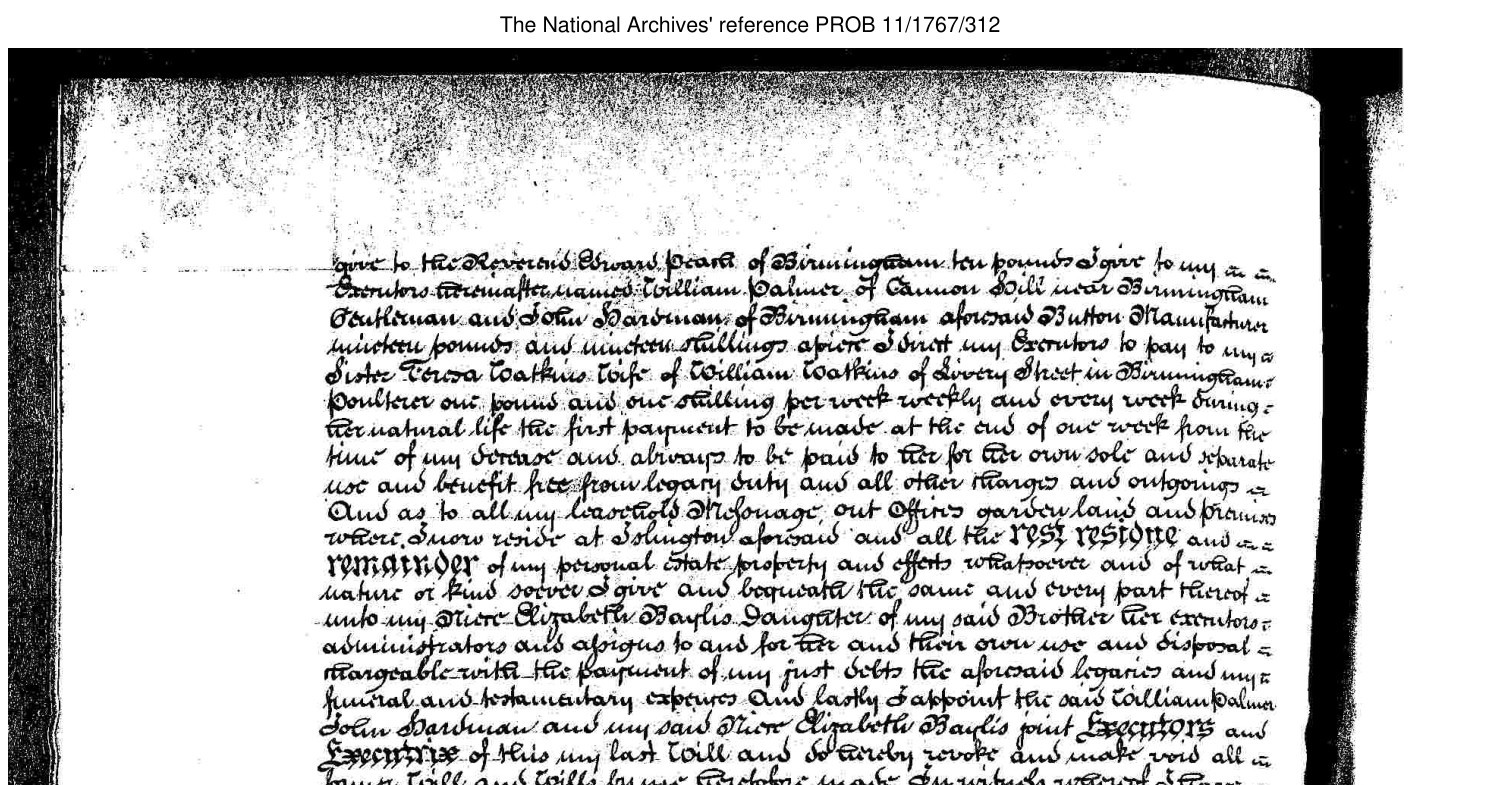 The National Archives' reference PROB 11/1767/312
give to the Reverend Edward Peach of Birmingham ten pounds I give to my
Executors hereinafter named William Palmer of Cannon Hill near Birmingham
Gentleman and John Hardman of Birmingham aforesaid Button Manufacturer
nineteen pounds and nineteen shillings apiece I direct my Executors to pay to my
Sister Teresa Watkins Wife of William Watkins of Livery Street in Birmingham
Poulterer one pound and one shilling per week weekly and every week during
her natural life the first payment to be made at the end of one week from the
time of my decease and always to be paid to her for her own sole and separate
use and benefit free from legacy duty and all other charges and outgoings
And as to all my leasehold Messuage, out Offices garden land and premises
where I now reside at Islington aforesaid and all the rest residue and
remainder of my personal estate property and effects whatsoever and of what
nature or kind soever I give and bequeath the same and every part thereof
unto my Niece Elizabeth Baylis Daughter of my said Brother her executors
administrators and assigns to and for her and their own use and disposal
chargeable with the payment of my just debts the aforesaid legacies and my
funeral and testamentary expences And lastly I appoint the said William Palmer
John Hardman and my said Niece Elizabeth Baylis joint Executors and
Executrix of this my last Will and do hereby revoke and make void all
former Will and Wills by me heretofore made In witness whereof I have